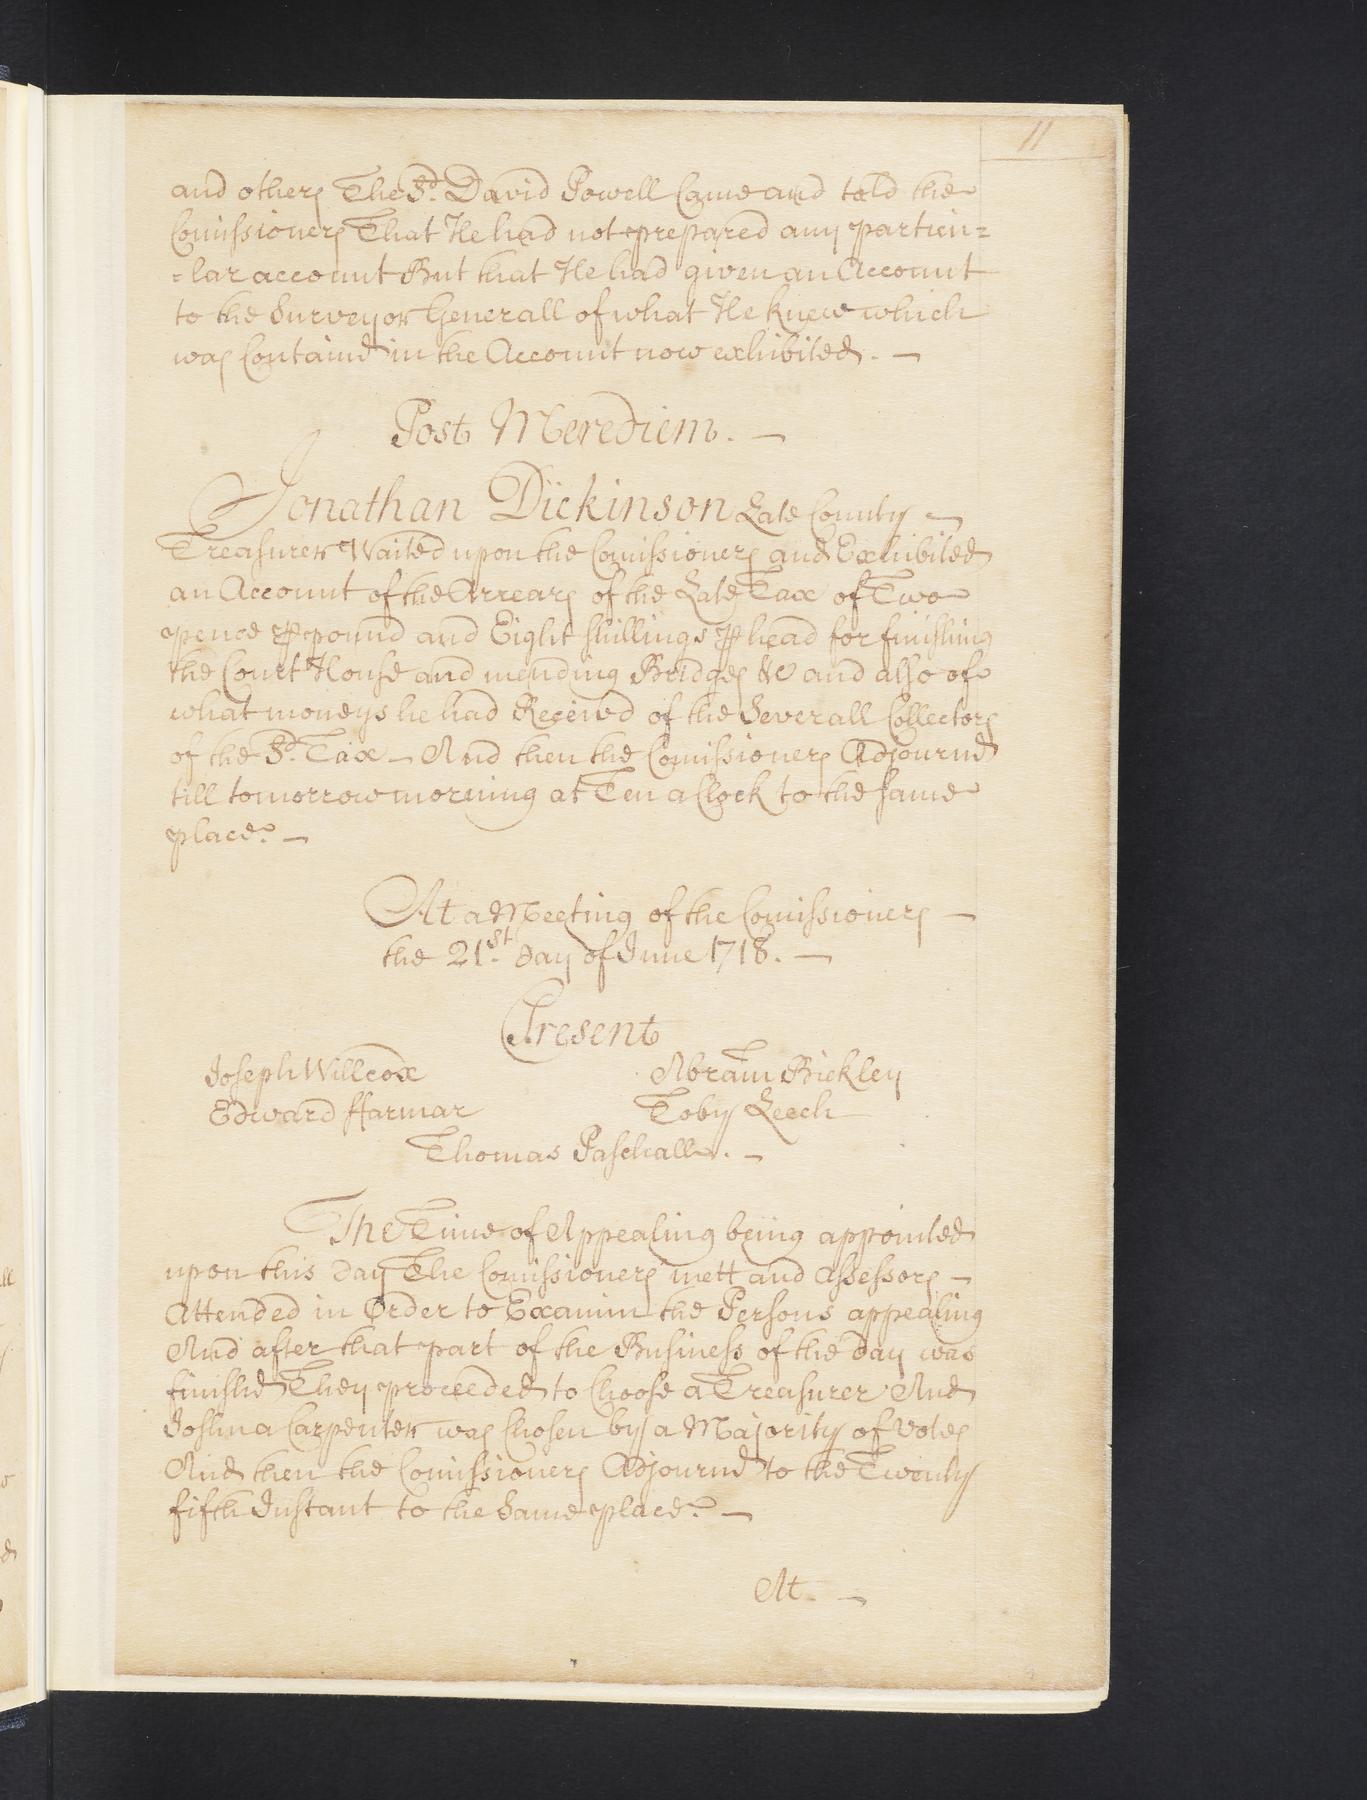 11
and others The Sd. David Powell Came and told the
Comissioners That He had not prepared any particu=
=lar account But that He had given an Account
to the Surveyor Generall of what He knew which
was Containd in the Account now exhibited. —
Post Merediem. —
Jonathan Dickinson Late County —
Treasurer Waited upon the Comissioners and Exhibited
an Account of the Arrears of the Late Tax of Two
pence ⅌ pound and Eight shillings ⅌ head for finishing
the Court House and mending Bridges &c and also of
what moneys he had Receivd of the Severall Collectors
of the Sd. Tax — And then the Comissioners Adjournd
till tomorrow morning at Ten a Clock to the same
place. —
At a Meeting of the Comissioners —
the 21st. Day of June 1718. —
Present
Joseph Willcox Abram Bickley
Edward ffarmar Toby Leech
Thomas Paschall. —
The Time of Appealing being appointed
upon this Day The Comissioners mett and Assessors —
Attended in Order to Examin the Persons appealing
And after that part of the Business of the day was
finishd They proceeded to Choose a Treasurer And
Joshua Carpenter was Chosen by a Majority of Votes
And then the Comissioners Adjournd to the Twenty
fifth Instant to the Same place. —
At —